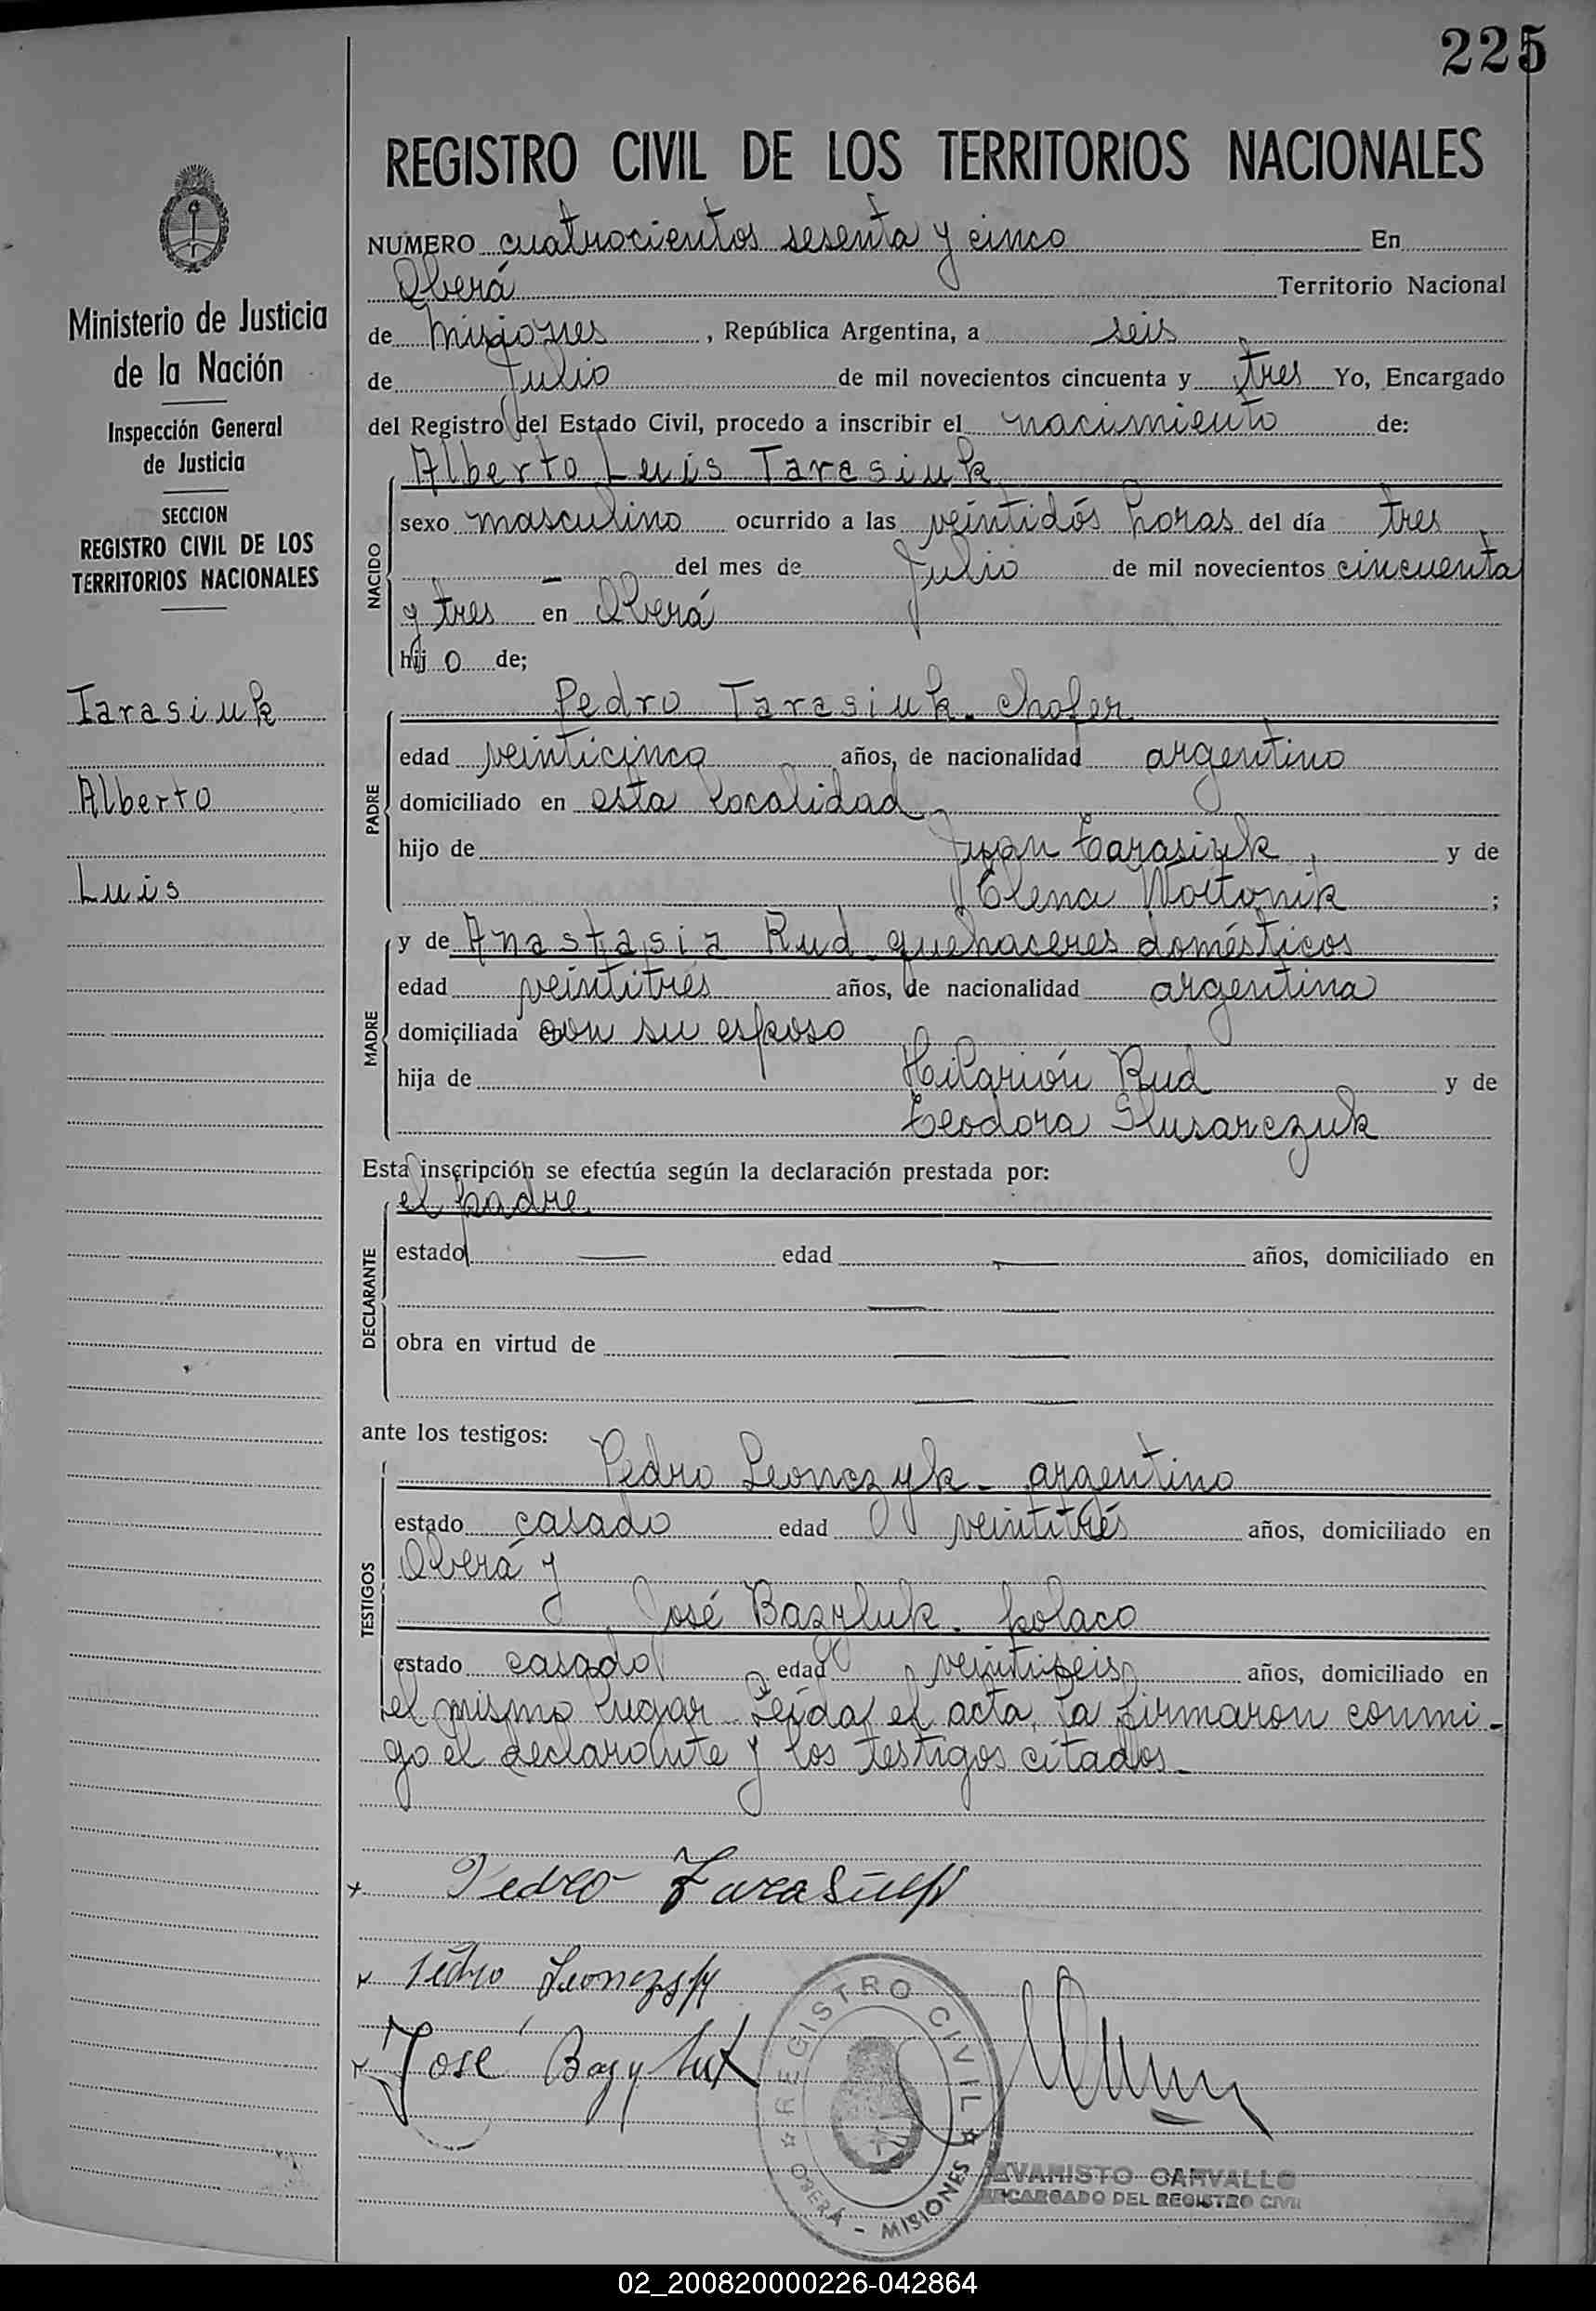 225
REGISTRO CIVIL DE LOS TERRITORIOS NACIONALES
Ministerio de Justicia
de la Nación
Inspección General
de Justicia
SECCION
REGISTRO CIVIL DE LOS
TERRITORIOS NACIONALES
Tarasiuk
Alberto
Luis
NUMERO cuatrocientos sesenta y cinco En
Oberá Territorio Nacional
de Misiones, República Argentina, a seis
de Julio de mil novecientos cincuenta y tres Yo, Encargado
del Registro del Estado Civil, procedo a inscribir el nacimiento de:
Alberto Luis Tarasiuk
NACIDO
sexo masculino ocurrido a las veintidós horas del día tres
— del mes de Julio de mil novecientos cincuenta
y tres en Oberá
hijo de;
Pedro Tarasiuk. chofer
PADRE
edad veinticinco años, de nacionalidad argentino
domiciliado en esta localidad
hijo de Juan Tarasiuk, y de
Elena Woitonik ;
y de Anastasia Rud. quehaceres domésticos
MADRE
edad veintitrés años, de nacionalidad argentina
domiciliada con su esposo
hija de Hilarión Rud y de
Teodora Slusarczuk
Esta inscripción se efectúa según la declaración prestada por:
el padre.
DECLARANTE
estado — edad — años, domiciliado en
— —
obra en virtud de — —
— —
ante los testigos:
Pedro Leonczyk - argentino
TESTIGOS
estado casado edad veintitrés años, domiciliado en
Oberá y
José Bazyluk. polaco
estado casado edad veintiseis años, domiciliado en
el mismo lugar. Leída el acta, la firmaron conmi-
go el declarante y los testigos citados.-
Pedro Tarasiuk
Pedro Leonczyk
José Bazyluk
REGISTRO CIVIL
OBERÁ - MISIONES
EVARISTO CARVALLO
ENCARGADO DEL REGISTRO CIVIL
02_200820000226-042864